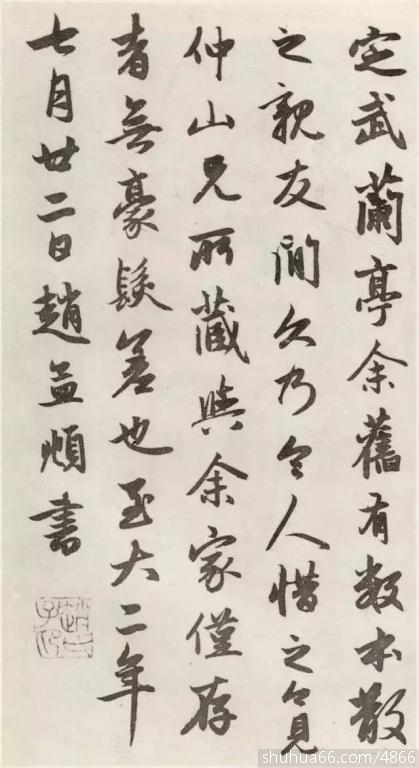 定武蘭亭余舊有数本散
之親友間久乃令人惜之今見
仲山兄所藏與余家僅存
者無豪髮差也至大二年
七月廿二日趙孟頫書
趙氏子昂
shuhua66.com/4866